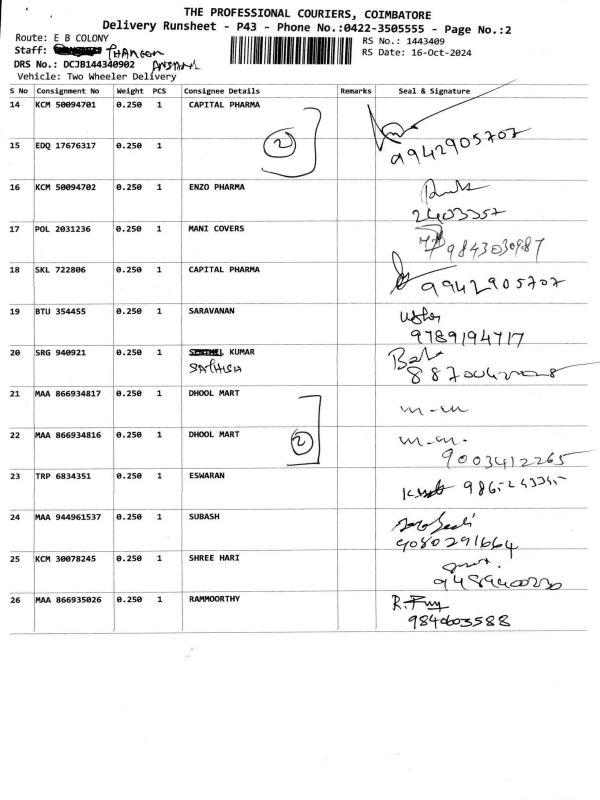 THE PROFESSIONAL COURIERS, COIMBATORE
Delivery Runsheet - P43 - Phone No.:0422-3505555 - Page No.:2
Route: E B COLONY RS No.: 1443409
Staff: RS Date: 16-Oct-2024
DRS No.: DCJB144340902
Vehicle: Two Wheeler Delivery
S No Consignment No Weight PCS Consignee Details Remarks Seal & Signature
14 KCM 50094701 0.250 1 CAPITAL PHARMA
2 9942905707
15 EDQ 17676317 0.250 1
16 KCM 50094702 0.250 1 ENZO PHARMA
2403357
17 POL 2031236 0.250 1 MANI COVERS
9843030987
18 SKL 722806 0.250 1 CAPITAL PHARMA
9942905707
19 BTU 354455 0.250 1 SARAVANAN
9789194717
20 SRG 940921 0.250 1 KUMAR
SATHISH
21 MAA 866934817 0.250 1 DHOOL MART
22 MAA 866934816 0.250 1 DHOOL MART 2
9003412265
23 TRP 6834351 0.250 1 ESWARAN
24 MAA 944961537 0.250 1 SUBASH
9080291664
25 KCM 30078245 0.250 1 SHREE HARI
26 MAA 866935026 0.250 1 RAMMOORTHY
9840603588